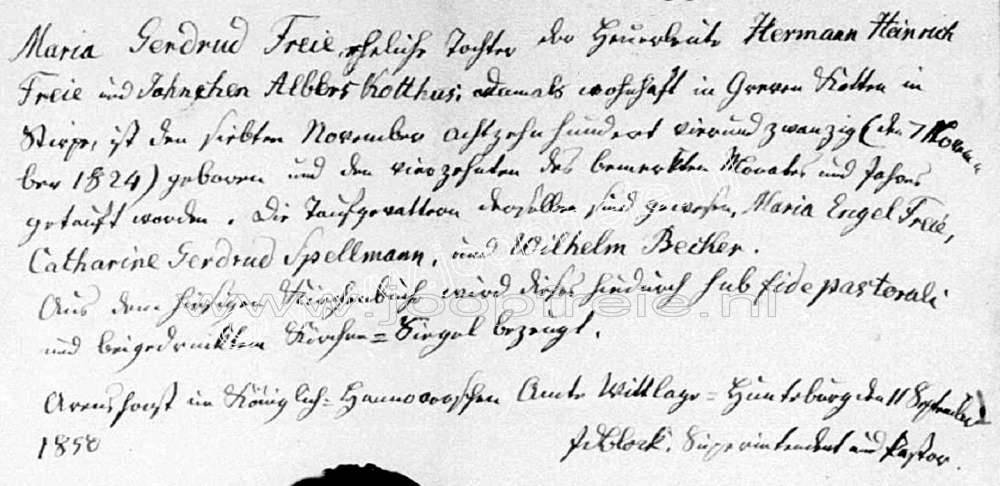 Maria Gerdrud Freie, eheliche Tochter der Heuerleute Hermann Heinrich
Freie und Johnchen Albers Kotthus, damals wohnhaft in Greven Kotten in
Stirpe, ist den siebten November achtzehnhundert vierund zwanzig (den 7 Novem-
ber 1824) geboren und den vierzehnten des bemerkten Monates und Jahres
getauft worden. Die Taufgevattern derselben sind gewesen, Maria Engel Freie,
Catharine Gerdrud Spellmann, und Wilhelm Becker.
Aus dem hiesigen Kirchenbuche wird dieses hiedurch sub fide pastorali
und beigedrucktem Kirchen=Siegel bezeugt.
Arenshorst im Königlich=Hannoverschen Amte Wittlage=Hunteburg den 11 September
1858
Block, Superintendent und Pastor.
www.jooopfreie.nl